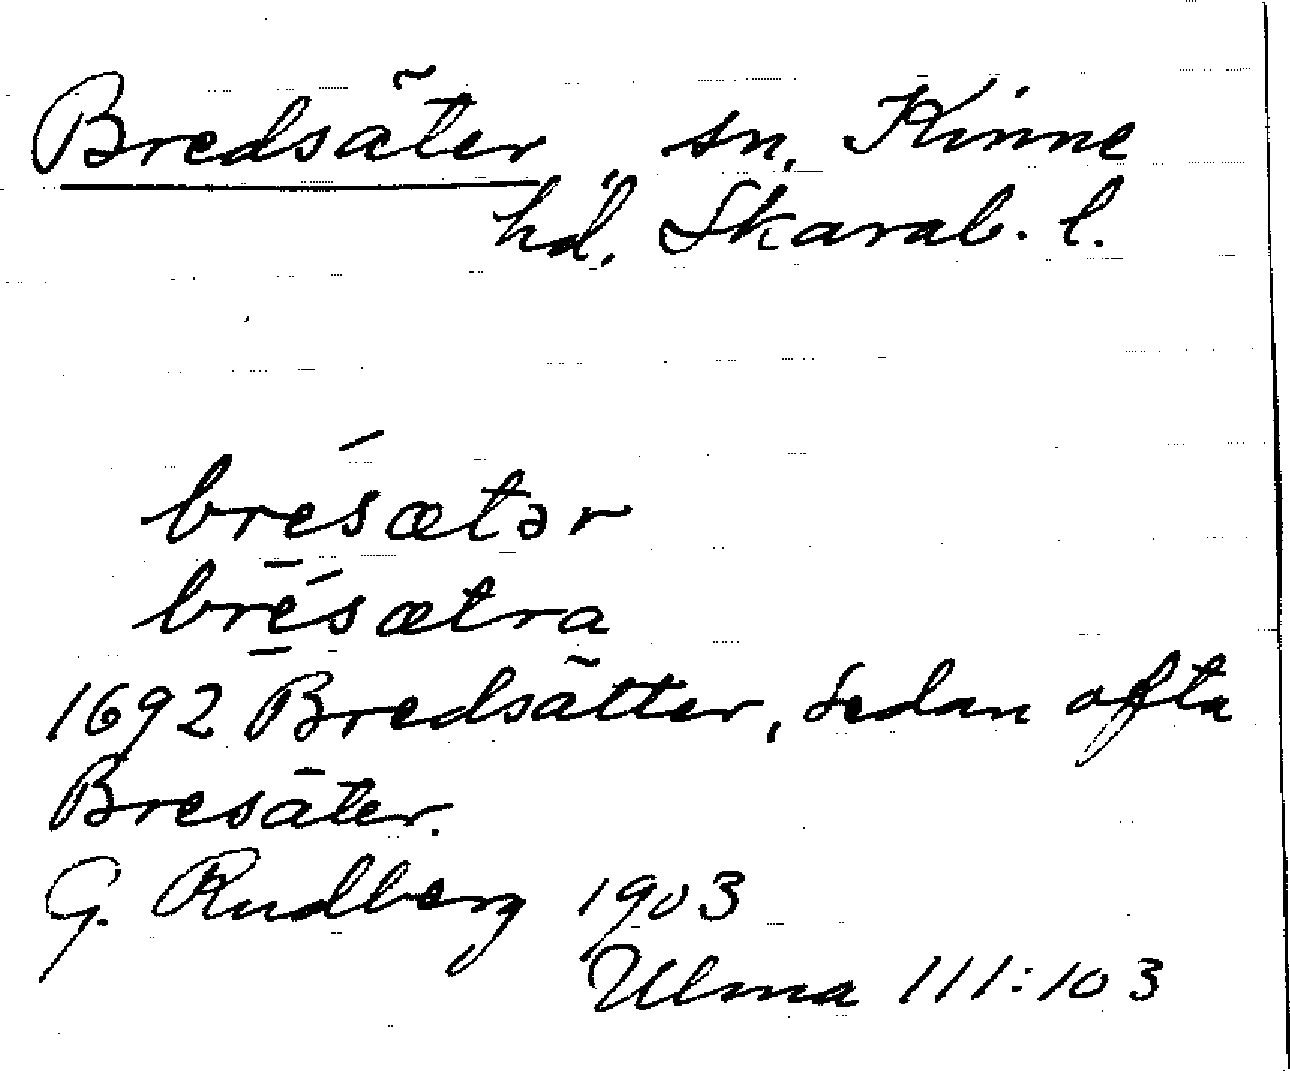 Bredsäter, sn, Kinne
hd, Skarab. l.
bre̱´sætər
bre̱´sætra
1692 Bredsätter, sedan ofta
Bresäter.
G. Rudberg 1903
Ulma 111:103